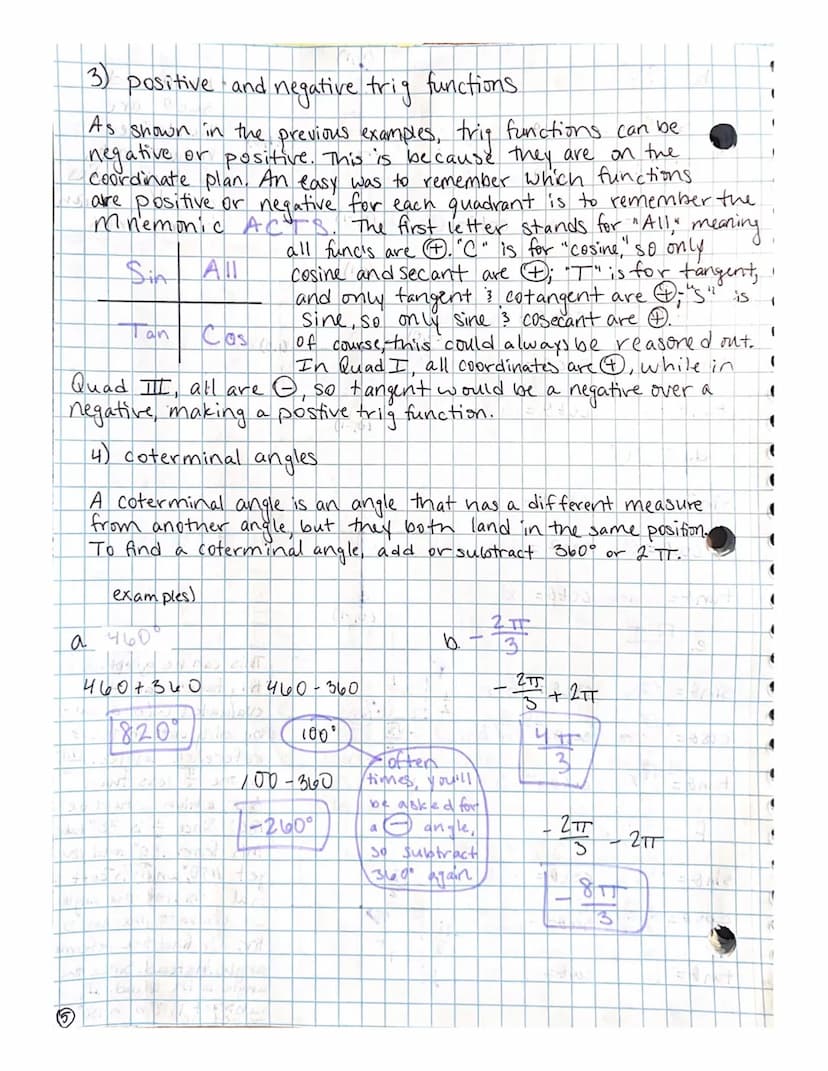 3) positive and negative trig functions
As shown in the previous examples, trig functions can be
negative or positive. This is because they are on the
coordinate plan. An easy was to remember which functions
are positive or negative for each quadrant is to remember the
mnemonic ACTS. The first letter stands for "All," meaning
all funcs are ⊕. "C" is for "cosine," so only
cosine and secant are ⊕; "T" is for tangent,
and only tangent & cotangent are ⊕; "S" is
sine, so only sine & cosecant are ⊕.
Of course, this could always be reasoned out.
In Quad I, all coordinates are ⊕, while in
Sin All
Tan Cos
Quad III, all are ⊖, so tangent would be a negative over a
negative, making a postive trig function.
4) coterminal angles
A coterminal angle is an angle that has a different measure
from another angle, but they both land in the same position.
To find a coterminal angle, add or subtract 360° or 2π.
examples)
a. 460°
460 + 360
820°
460 - 360
100°
100 - 360
-260°
often
times, you'll
be asked for
a ⊖ angle,
so subtract
360° again
b. - 2π/3
- 2π/3 + 2π
4π/3
- 2π/3 - 2π
- 8π/3
5